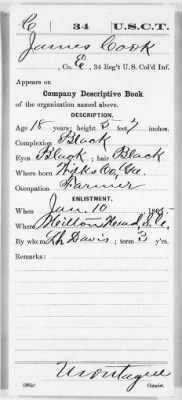 C | 34 | U.S.C.T.
James Cook
, Co. E, 34 Reg't U.S. Col'd Inf.
Appears on
Company Descriptive Book
of the organization named above.
DESCRIPTION.
Age 18 years; height 5 feet 7 inches.
Complexion Black
Eyes Black; hair Black
Where born Wilks Co, Ga.
Occupation Farmer
ENLISTMENT.
When Jan. 10, 1865
Where Hilton Head, S.C.
By whom Davis; term 3 y'rs.
Remarks:
Montague
Copyist.